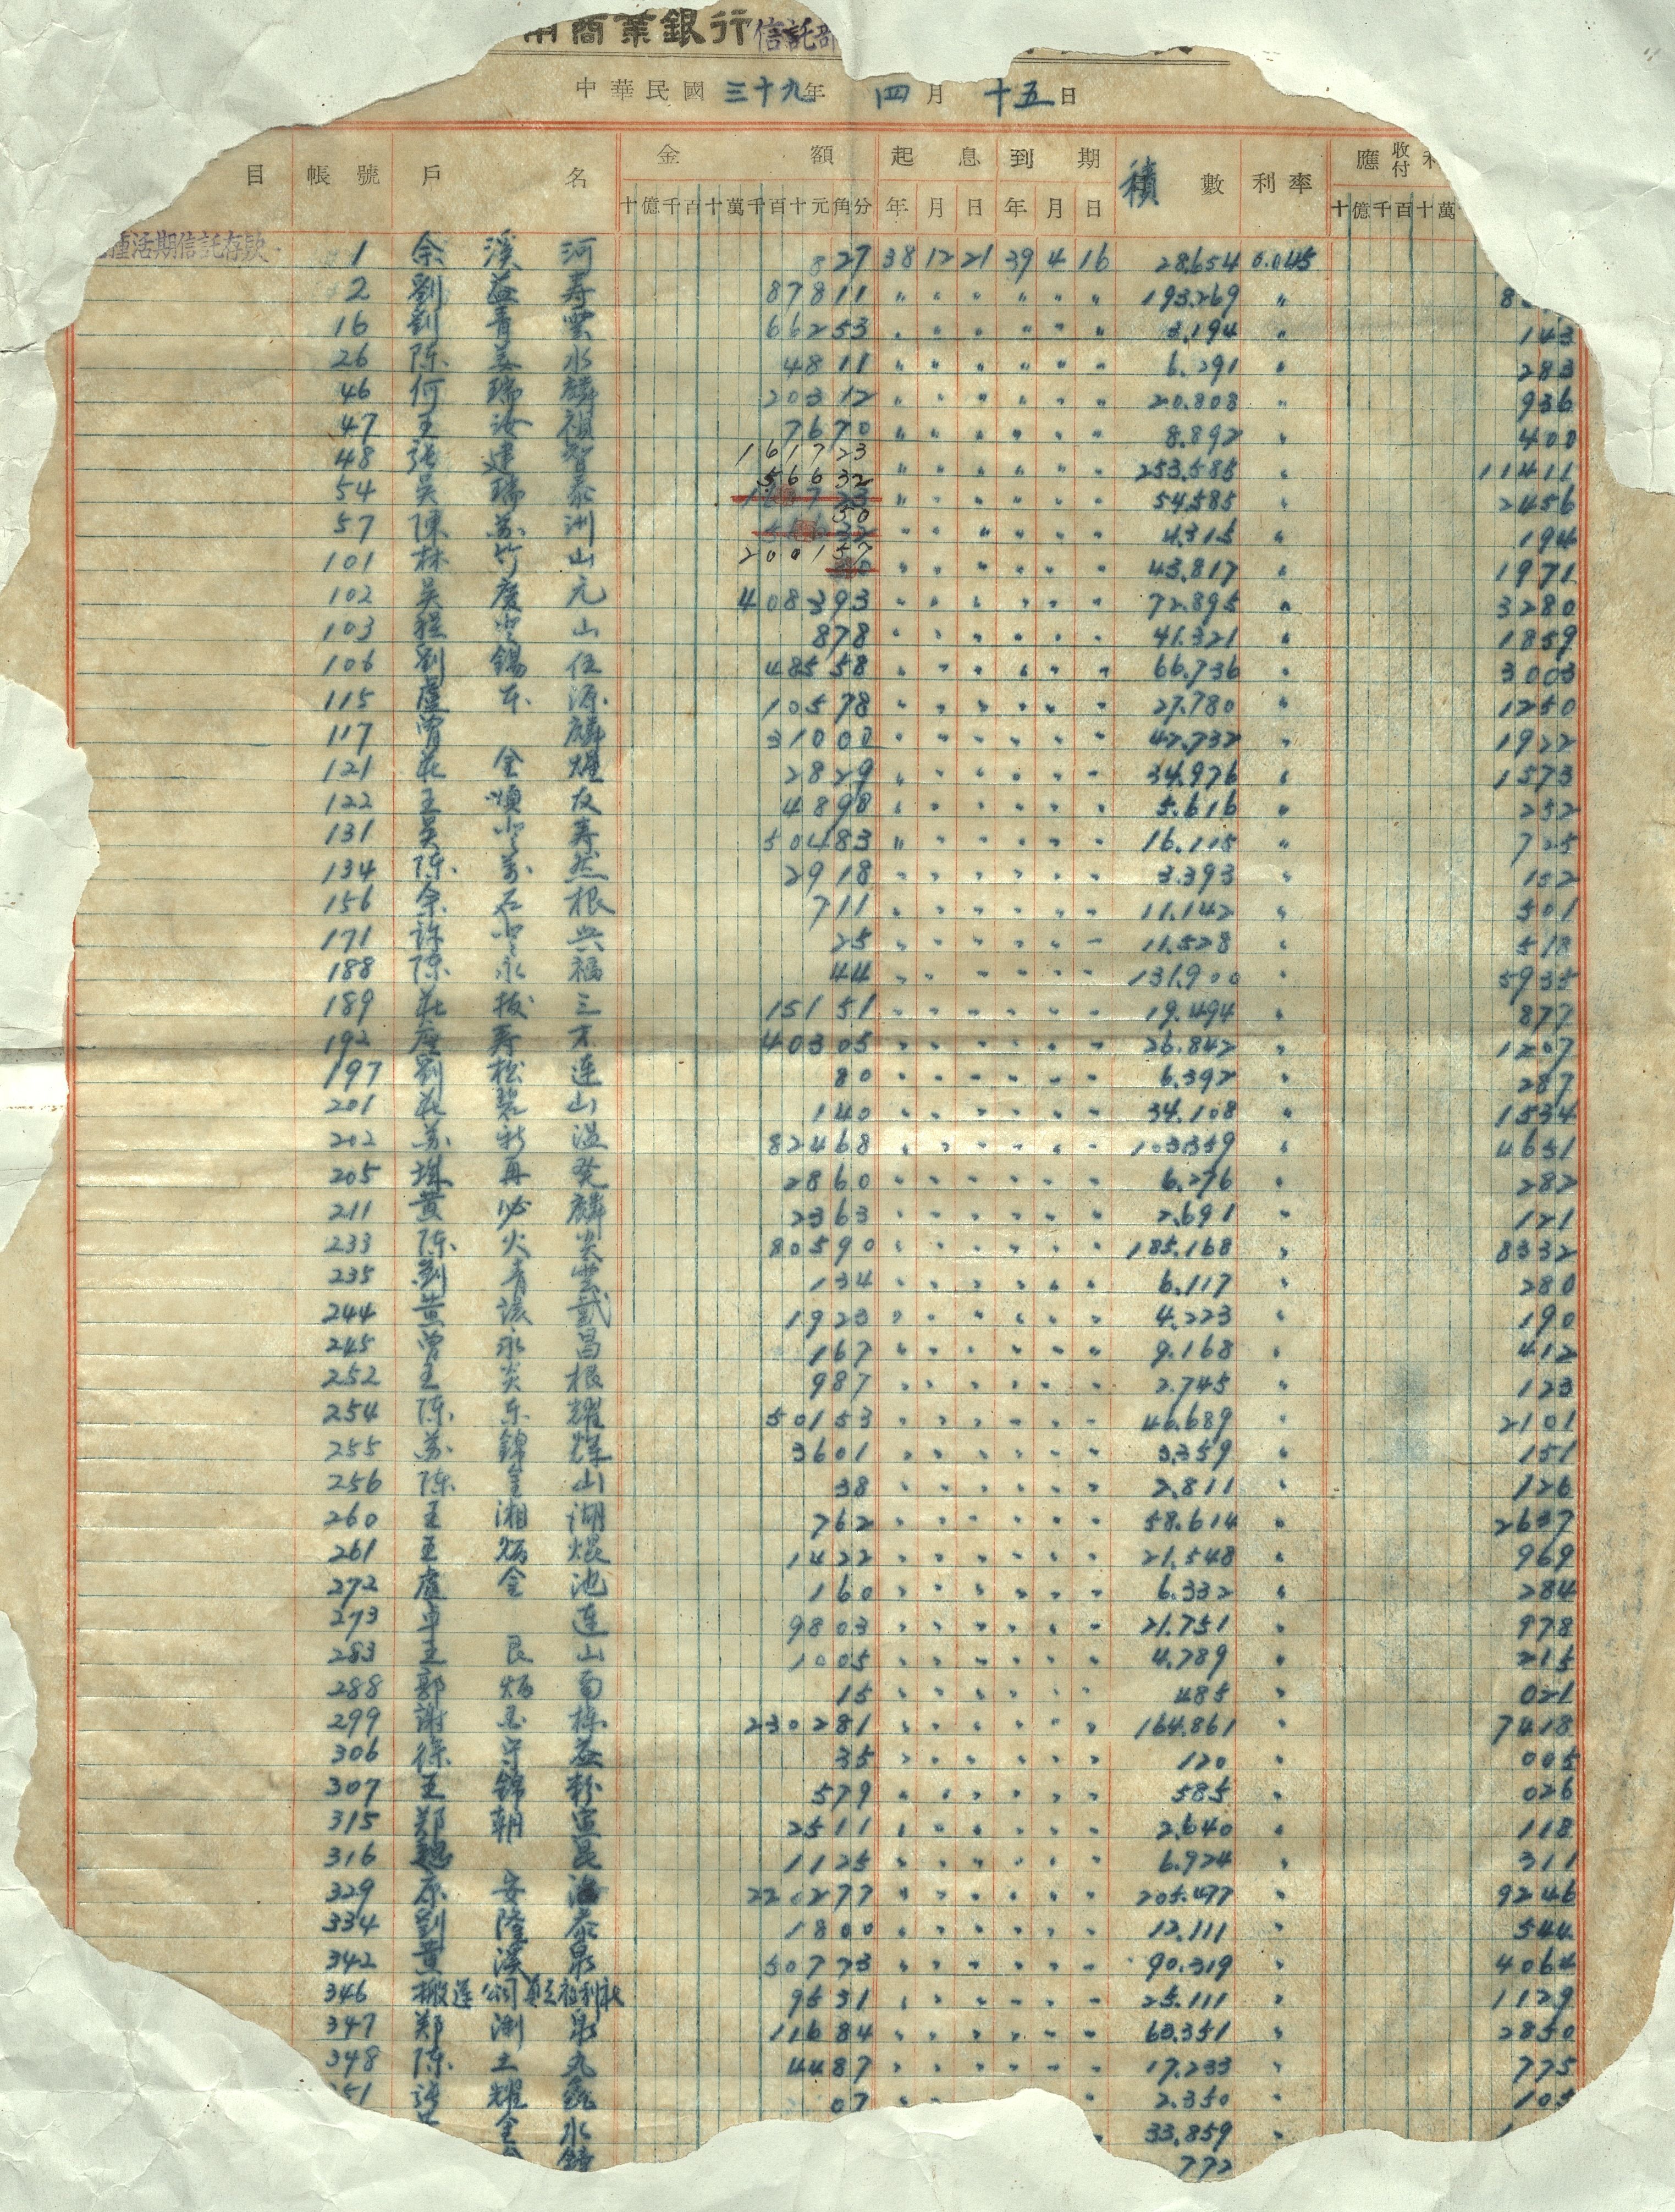 商業銀行信託部
中華民國 三十九年 四月 十五日
目 帳號 戶名 金額 起息 到期 積數 利率 應收付利
十億千百十萬千百十元角分 年月日 年月日 十億千百十萬
種活期信託存款 1 余溪河 827 38 12 21 39 4 16 28.654 0.045
2 劉益寿 87811 〃 〃 〃 〃 〃 〃 193.269 〃 8
16 劉青雲 66253 〃 〃 〃 〃 〃 〃 3.194 〃 143
26 陈水 4811 〃 〃 〃 〃 〃 〃 6.291 〃 283
46 何瑞麟 20312 〃 〃 〃 〃 〃 〃 20.808 〃 936
47 王汝祖 7670 〃 〃 〃 〃 〃 〃 8.892 〃 400
48 張建智 161723 〃 〃 〃 〃 〃 〃 253.585 〃 11411
54 吴瑞泰 56632 〃 〃 〃 〃 〃 〃 54.585 〃 2456
57 陳苏洲 50 〃 〃 〃 〃 〃 〃 4.315 〃 194
101 林竹山 200157 〃 〃 〃 〃 〃 〃 43.817 〃 1971
102 吴慶元 408393 〃 〃 〃 〃 〃 〃 72.895 〃 3280
103 程山 878 〃 〃 〃 〃 〃 〃 41.321 〃 1859
106 劉錫伍 48558 〃 〃 〃 〃 〃 〃 66.736 〃 3003
115 盧东源 10578 〃 〃 〃 〃 〃 〃 27.780 〃 1250
117 曾麟 31000 〃 〃 〃 〃 〃 〃 42.732 〃 1922
121 莊金耀 2829 〃 〃 〃 〃 〃 〃 34.976 〃 1573
122 王順友 4898 〃 〃 〃 〃 〃 〃 5.616 〃 252
131 吴寿 50483 〃 〃 〃 〃 〃 〃 16.115 〃 725
134 陈然 2918 〃 〃 〃 〃 〃 〃 3.393 〃 152
156 余石根 711 〃 〃 〃 〃 〃 〃 11.142 〃 501
171 許兴 25 〃 〃 〃 〃 〃 〃 11.528 〃 518
188 陈永福 44 〃 〃 〃 〃 〃 〃 131.900 〃 5935
189 莊拔三 15151 〃 〃 〃 〃 〃 〃 19.494 〃 877
192 寿才 40305 〃 〃 〃 〃 〃 〃 26.842 〃 1207
197 劉松连 80 〃 〃 〃 〃 〃 〃 6.392 〃 287
201 莊碧山 140 〃 〃 〃 〃 〃 〃 34.108 〃 1534
202 苏新溢 82468 〃 〃 〃 〃 〃 〃 103.359 〃 4651
205 再発 2860 〃 〃 〃 〃 〃 〃 6.276 〃 282
211 黄必麟 2363 〃 〃 〃 〃 〃 〃 2.691 〃 121
233 陈火炎 80590 〃 〃 〃 〃 〃 〃 185.168 〃 8332
235 劉青雲 134 〃 〃 〃 〃 〃 〃 6.117 〃 280
244 黄 1923 〃 〃 〃 〃 〃 〃 4.223 〃 190
245 曾永昌 167 〃 〃 〃 〃 〃 〃 9.168 〃 412
252 王炎根 987 〃 〃 〃 〃 〃 〃 2.745 〃 123
254 陈东耀 50153 〃 〃 〃 〃 〃 〃 46.689 〃 2101
255 苏錦輝 3601 〃 〃 〃 〃 〃 〃 3.359 〃 151
256 陈皇山 38 〃 〃 〃 〃 〃 〃 2.811 〃 126
260 王湘湖 762 〃 〃 〃 〃 〃 〃 58.614 〃 2637
261 王炳焜 1422 〃 〃 〃 〃 〃 〃 21.548 〃 969
272 盧金池 160 〃 〃 〃 〃 〃 〃 6.332 〃 284
273 卓连 9803 〃 〃 〃 〃 〃 〃 21.751 〃 978
283 王良山 1005 〃 〃 〃 〃 〃 〃 4.789 〃 215
288 郭炳南 15 〃 〃 〃 〃 〃 〃 485 〃 021
299 謝栋 230281 〃 〃 〃 〃 〃 〃 164.861 〃 7418
306 徐守益 35 〃 〃 〃 〃 〃 〃 120 〃 005
307 王錦粉 579 〃 〃 〃 〃 〃 〃 585 〃 026
315 郑朝 2511 〃 〃 〃 〃 〃 〃 2.640 〃 118
316 趙昆 1125 〃 〃 〃 〃 〃 〃 6.924 〃 311
329 原安海 220277 〃 〃 〃 〃 〃 〃 205.477 〃 9246
334 劉陸泰 1800 〃 〃 〃 〃 〃 〃 12.111 〃 544
342 黄溪泉 50773 〃 〃 〃 〃 〃 〃 90.319 〃 4064
346 搬運公司員工福利社 9531 〃 〃 〃 〃 〃 〃 25.111 〃 1129
347 郑渊泉 11684 〃 〃 〃 〃 〃 〃 63.351 〃 2850
348 陈土丸 4487 〃 〃 〃 〃 〃 〃 17.233 〃 775
51 張耀 07 〃 〃 〃 2.350 〃 105
金水 〃 33.859 〃
772